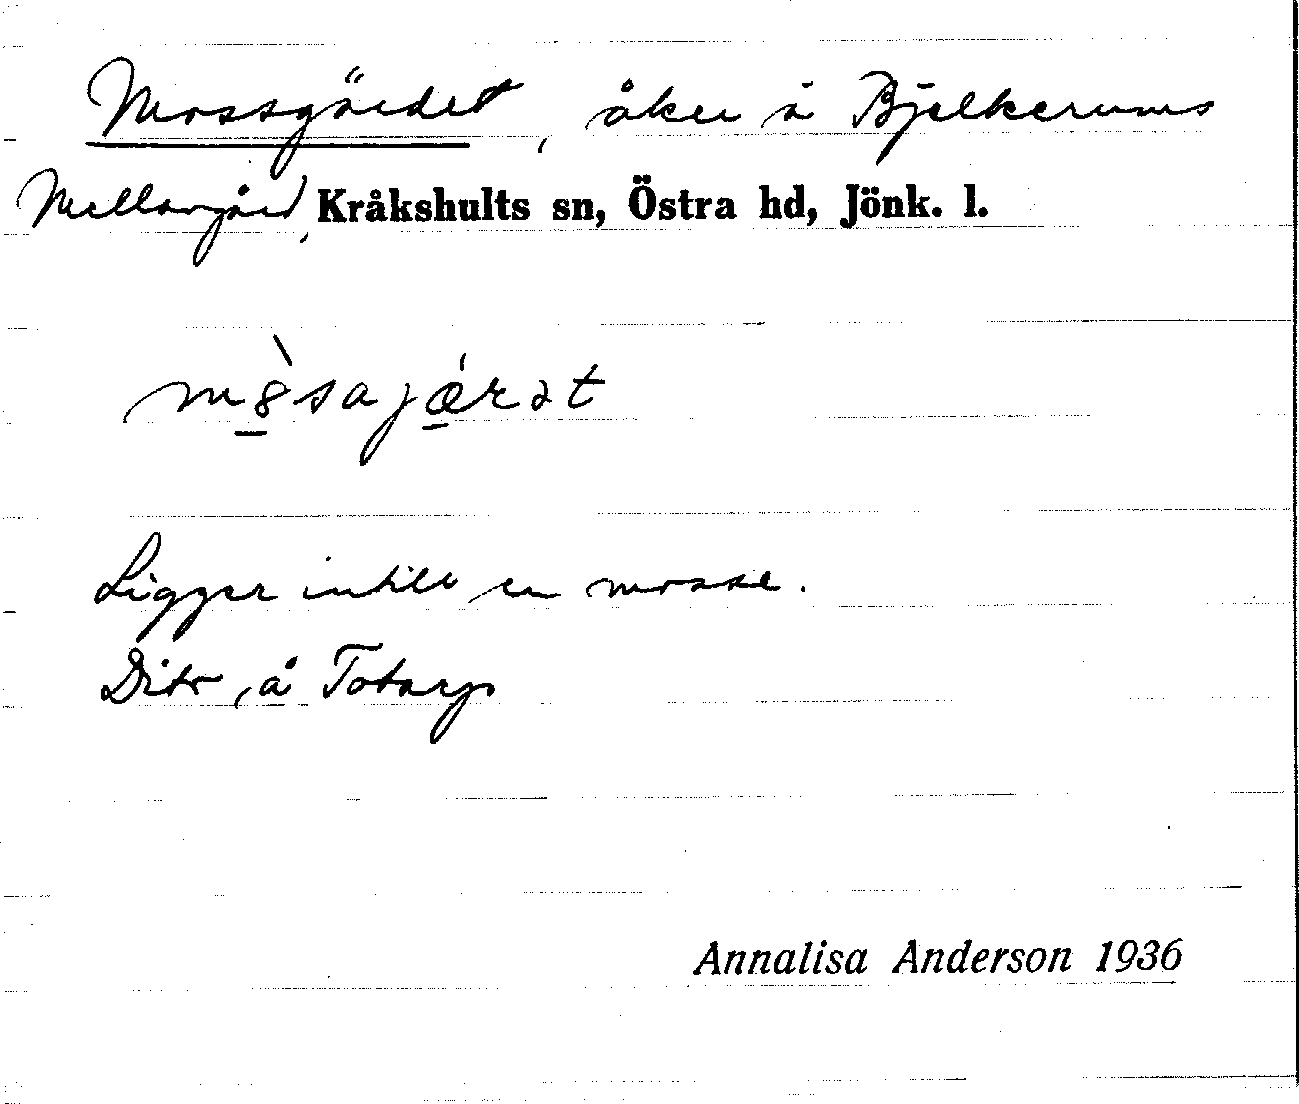 Mossgärdet, åker å Bjelkerums
Mellangård, Kråkshults sn, Östra hd, Jönk. l.
m8̀sajǽrət
Ligger intill en mosse.
Dito, å Totarp
Annalisa Anderson 1936